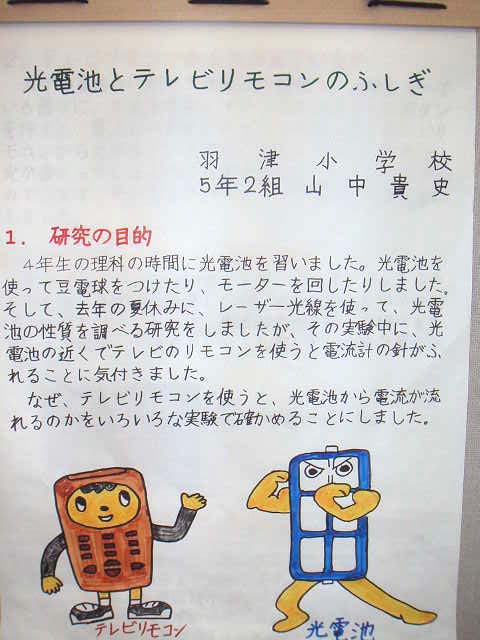 光電池とテレビリモコンのふしぎ
羽津小学校
5年2組 山中貴史
1. 研究の目的
4年生の理科の時間に光電池を習いました。光電池を
使って豆電球をつけたり、モーターを回したりしました。
そして、去年の夏休みに、レーザー光線を使って、光電
池の性質を調べる研究をしましたが、その実験中に、光
電池の近くでテレビのリモコンを使うと電流計の針がふ
れることに気付きました。
なぜ、テレビリモコンを使うと、光電池から電流が流
れるのかをいろいろな実験で確かめることにしました。
テレビリモコン
光電池